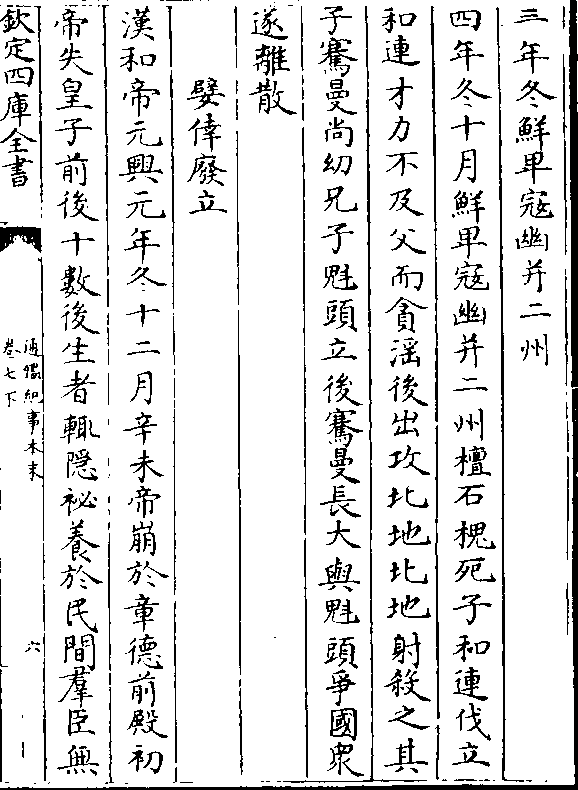 三年冬鮮卑寇幽并二州
四年冬十月鮮卑寇幽并二州檀石槐死子和連伐立
和連才力不及父而貪滛後出攻北地北地射殺之其
子騫曼尚幼兄子魁頭立後騫曼長大與魁頭爭國衆
遂離散
嬖倖廢立
漢和帝元興元年冬十二月辛未帝崩於章德前殿初
帝失皇子前後十數後生者輒隠祕養於民間羣臣無
欽定四庫全書
通鑑紀事本末
卷七下
六